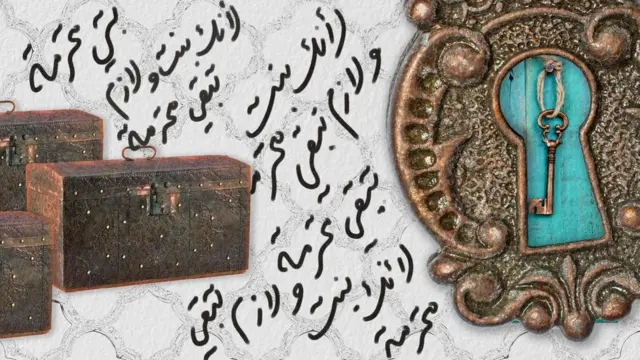 تبقي محترمة
أنك بنت ولازم
تبقي محترمة
أنك بنت
ولازم تبقي محترمة
تبقي محترمة
أنك بنت ولازم تبقي
محترمة